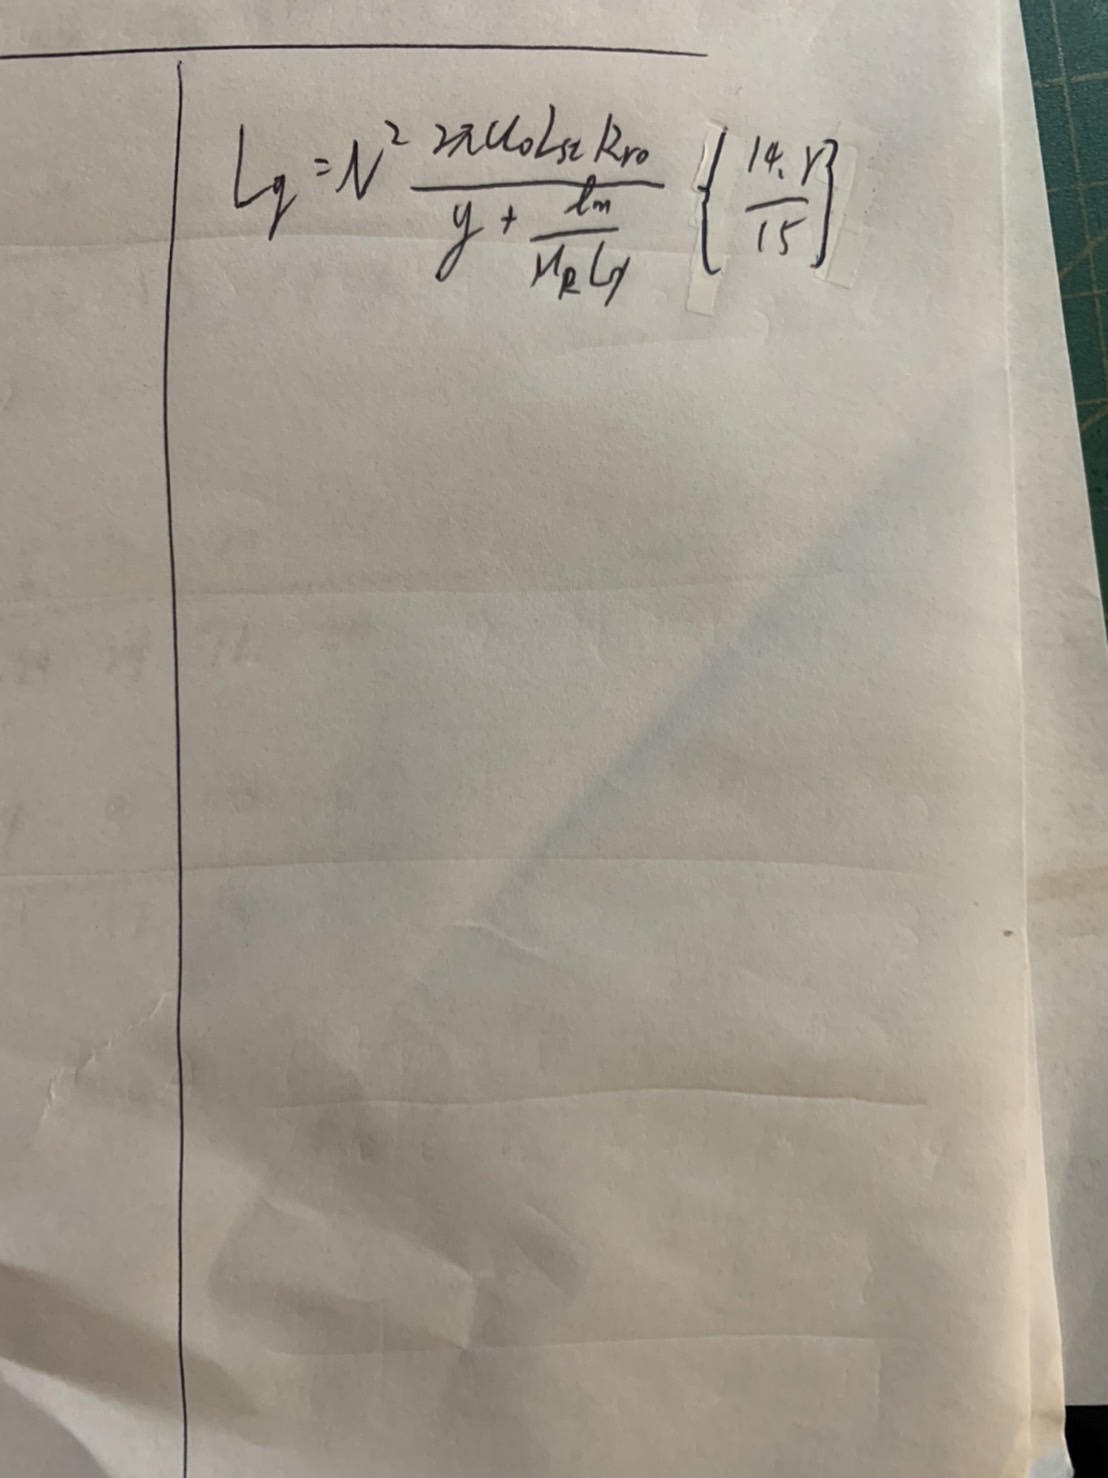 Lq = N² \frac{2πμ₀L_{st} R_{ro}}{y + \frac{l_m}{μ_R L_y}} \left\{ \frac{14.Y}{15} \right\}